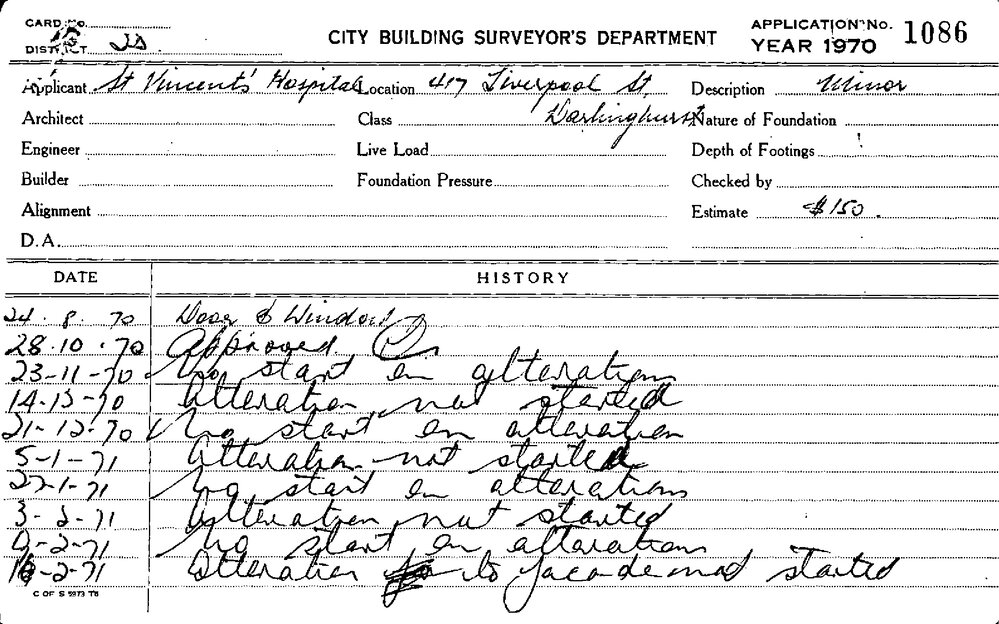 CARD No.
DISTRICT
CITY BUILDING SURVEYOR'S DEPARTMENT
APPLICATION No. 1086
YEAR 1970
Applicant St Vincents' Hospital Location 417 Liverpool St, Description Minor
Architect Class Darlinghurst Nature of Foundation
Engineer Live Load Depth of Footings
Builder Foundation Pressure Checked by
Alignment Estimate $150.
D.A.
DATE HISTORY
24.8.70 Door & Window
28.10.70 Approved
23-11-70 No start on alteration
70 Alteration not started
21-12-70 No start on alteration
5-1-71 Alteration not started
1-71 No start on alterations
3-2-71 Alteration not started
2-71 No start on alterations
2-71 Alteration to facade started
C OF S 5973 T8